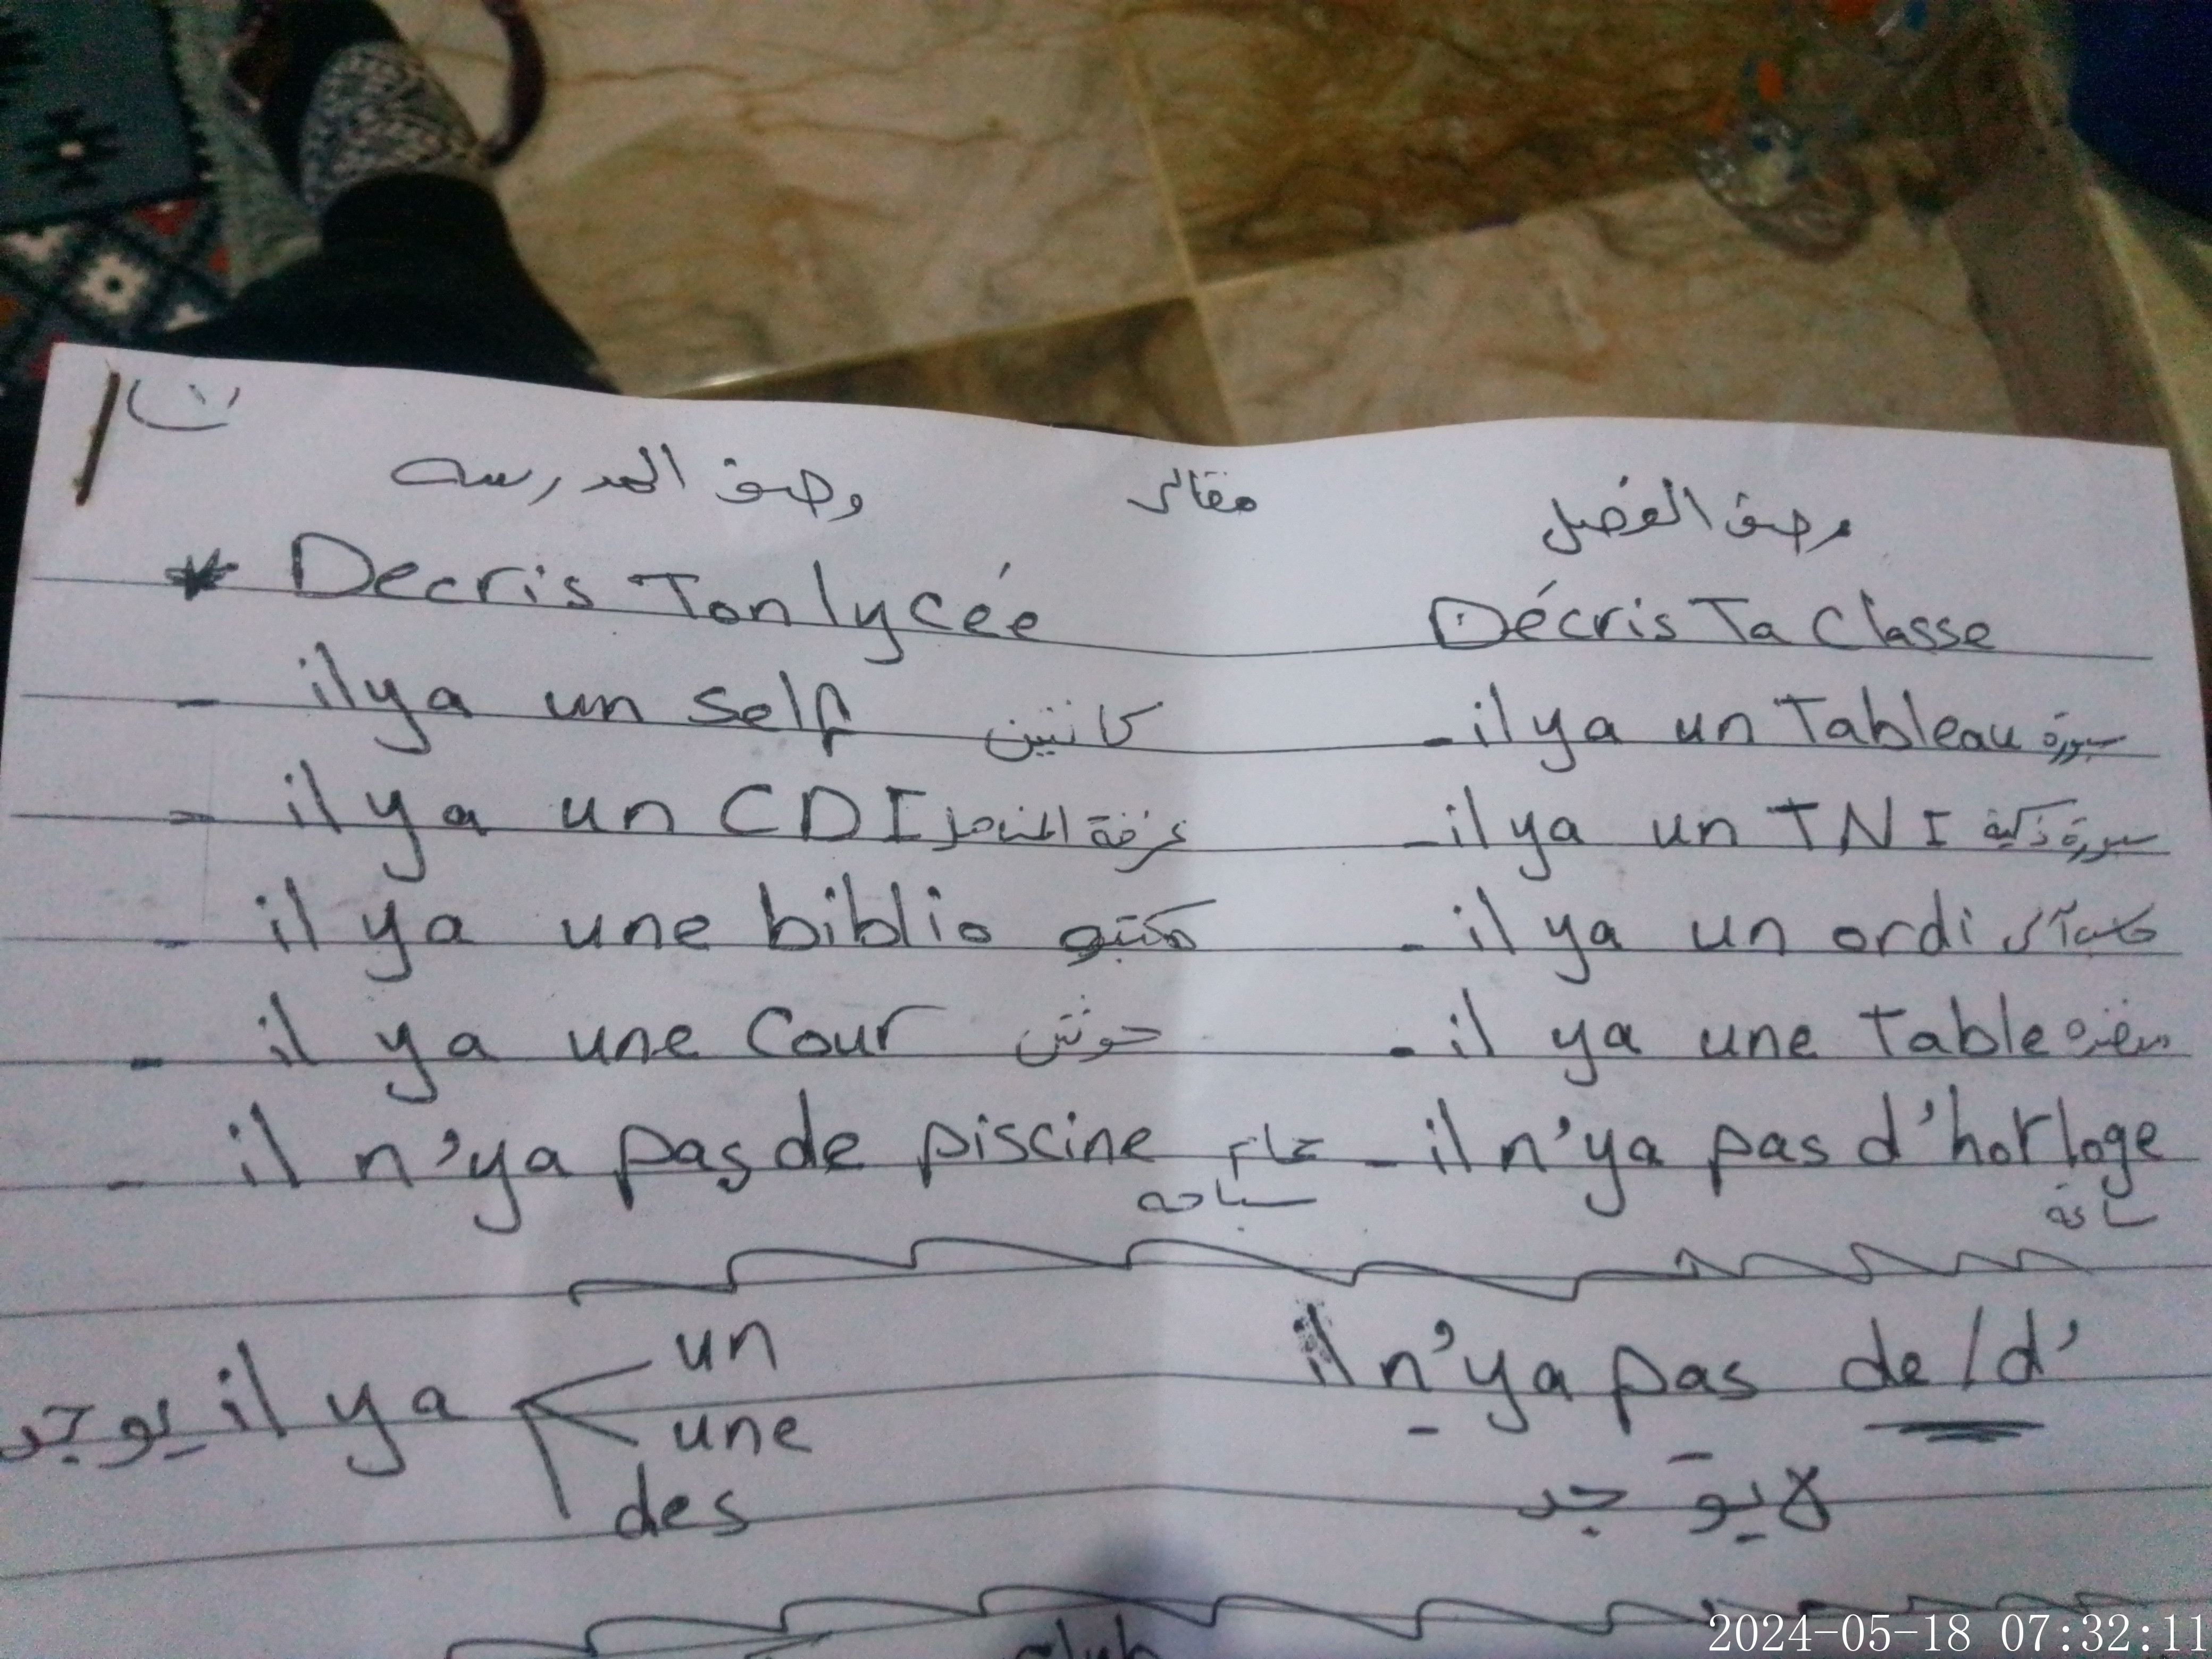 وصف المدرسه
مقالى
وصف الفصل
* Decris Ton lycée
Décris Ta Classe
- il ya un self كانتين
- il ya un Tableau سبورة
- il ya un CDI غرفة المناهل
- il ya un TNI سبورة ذكية
- il ya une biblio مكتبه
- il ya un ordi
- il ya une Cour حوش
- il ya une Table
- il n'ya pas de piscine حمام سباحه
- il n'ya pas d'horloge ساعة
il ya يوجد
un
une
des
il n'ya pas de/d'
لا يوجد
2024-05-18 07:32:11